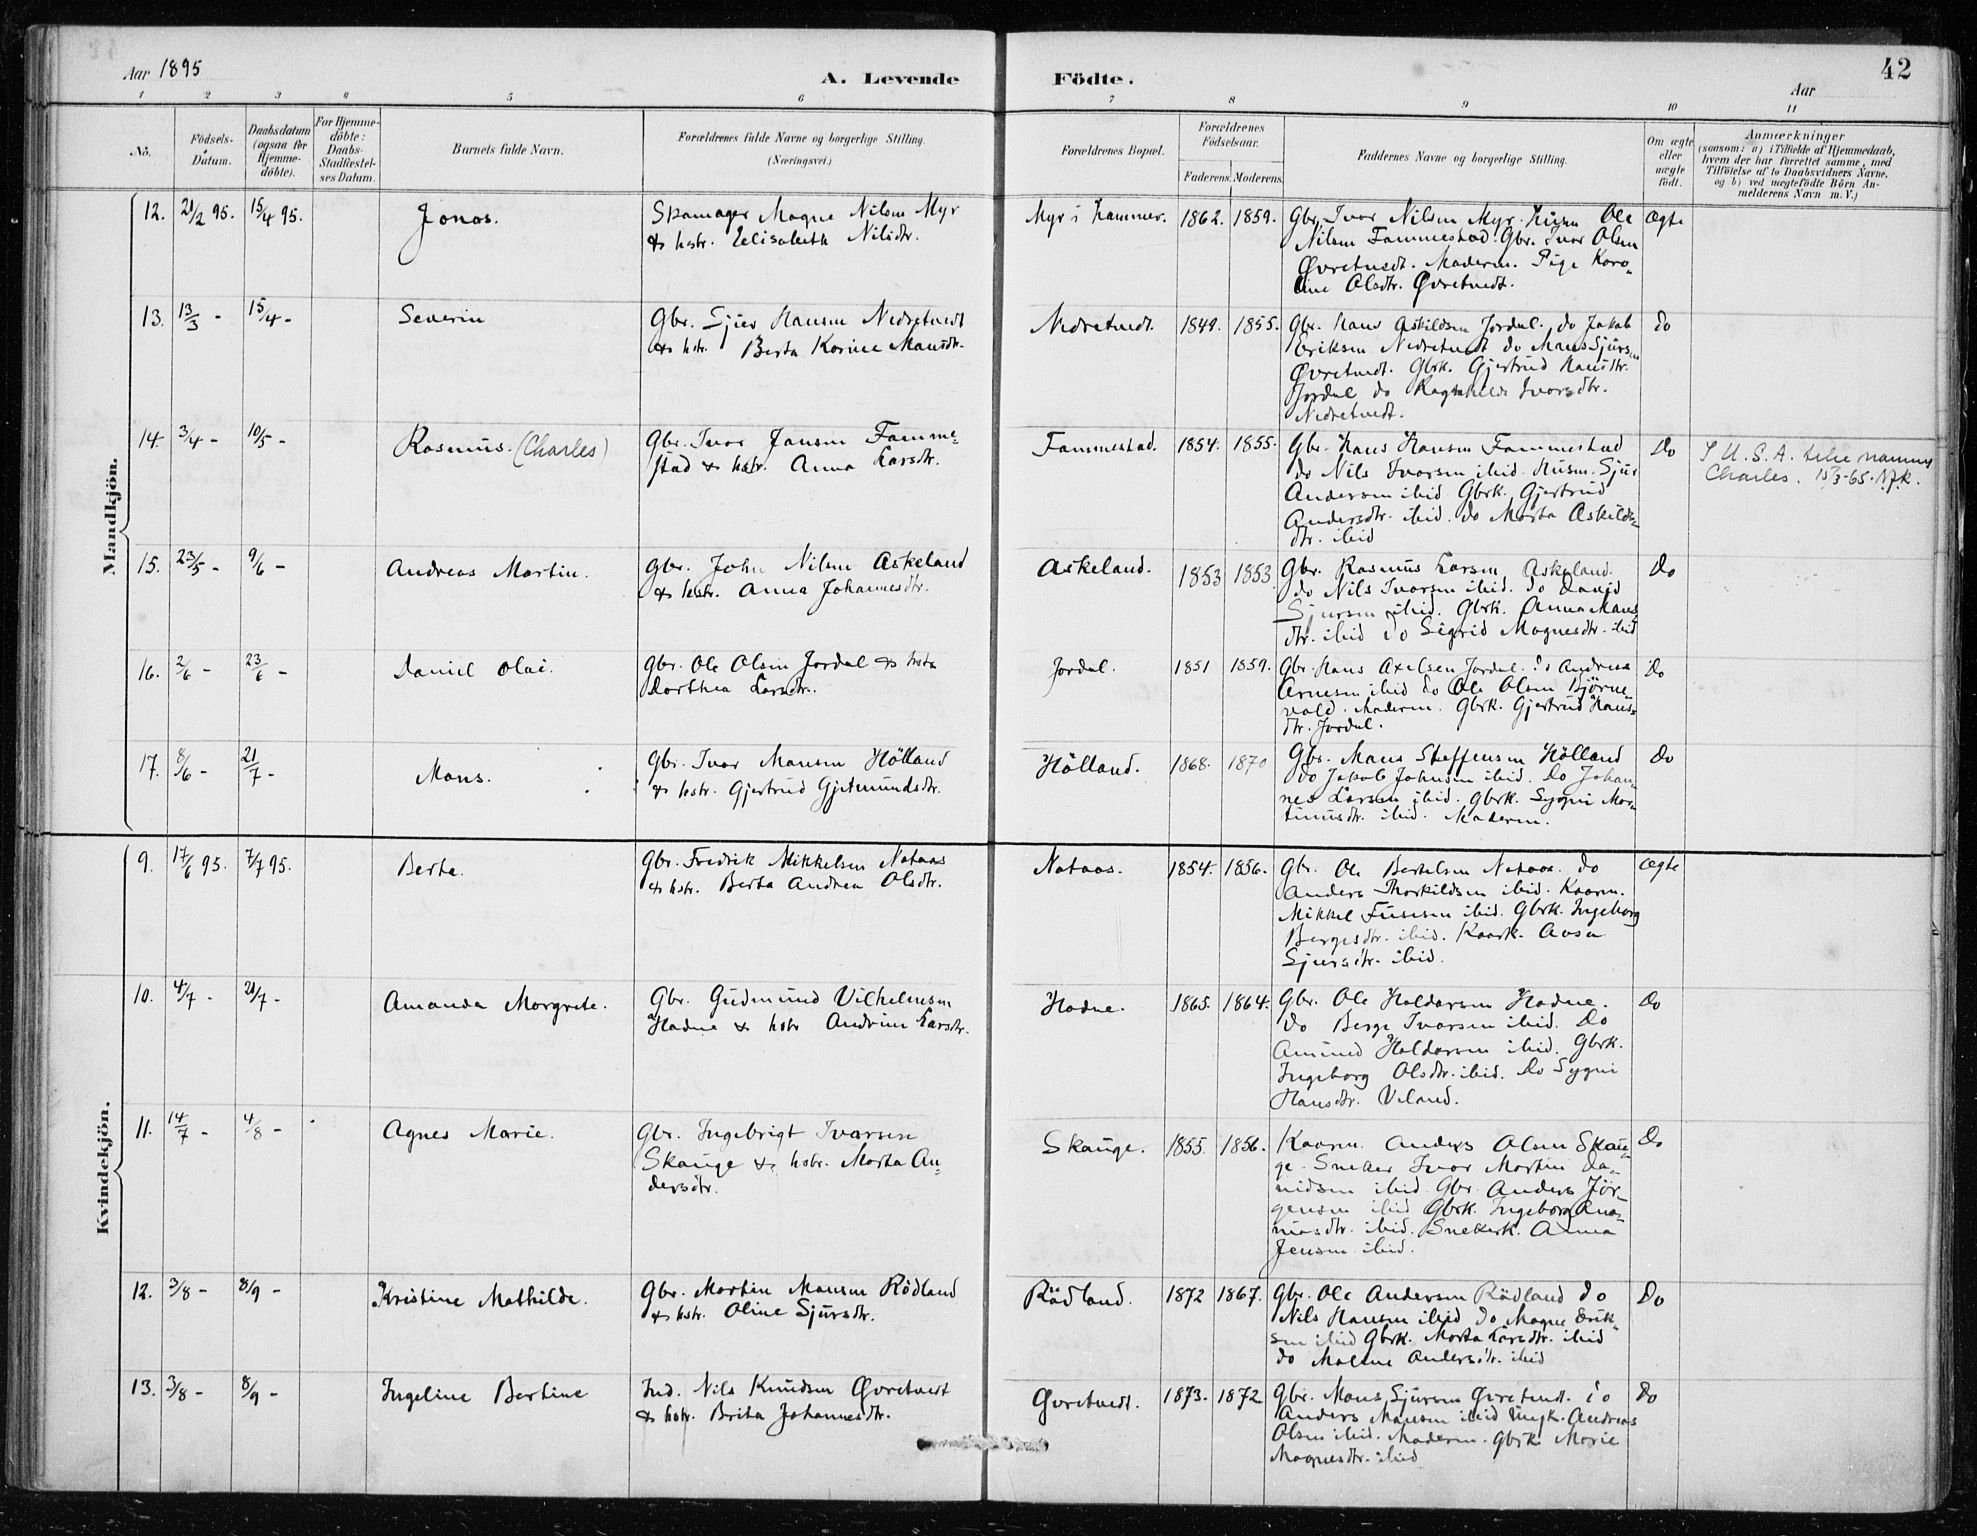 42
Aar 1895
A. Levende Födte.
Aar
1 2 3 4 5 6 7 8 9 10 11
Nō.
Födsels-
Datum.
Daabsdatum
(ogsaa for
Hjemme-
döbte).
For Hjemme-
döbte:
Daabs-
Stadfæstel-
ses Datum.
Barnets fulde Navn.
Forældrenes fulde Navne og borgerlige Stilling.
(Næringsvei.)
Forældrenes Bopæl.
Forældrenes
Födselsaar.
Faderens. Moderens.
Faddernes Navne og borgerlige Stilling.
Om ægte
eller
uægte
födt.
Anmærkninger
(saasom: a) i Tilfælde af Hjemmedaab,
hvem der har forrettet samme, med
Tilföielse af to Daabsvidners Navne.
og b) ved uægtefödte Börn An-
melderens Navn m. V.)
Mandkjön.
12. 21/2 95. 15/4 95. Jonas.
Skomager Magne Nilsen Myr
& hstr. Elisabeth Nilsdtr.
Myr i Hammer. 1862. 1859.
Gbr. Ivar Nilsen Myr. Husm Ole
Nilsen Fammestad. Gbr. Ivar Olsen
Øvretvedt. Moderen. Pige Karo-
line Olsdtr. Øvretvedt.
Ægte
13. 13/3 - 15/4 - Severin
Gbr. Sjur Hansen Nedretvedt
& hstr. Berta Karine Mansdtr.
Nedretvedt. 1849. 1855.
Gbr. Hans Askildsen Jordal. do Jakob
Eriksen Nedretvedt do Mans Sjursen
Øvretvedt. Gbrk. Gjertrud Hansdtr.
Jordal do Ragnhilde Ivarsdtr.
Nedretvedt.
do
14. 3/4 - 10/5 - Rasmus. (Charles)
Gbr. Ivar Jansen Famme-
stad & hstr. Anna Larsdtr.
Fammestad. 1854. 1855.
Gbr. Hans Hansen Fammestad
do Nils Ivarsen ibid. Husm. Sjur
Andersen ibid. Gbrk. Gjertrud
Andersdtr. ibid. do Marta Askilds-
dtr. ibid
Do
I U.S.A. Charles. 15/3-65. N.J.K.
15. 23/5 - 9/6 - Andreas Martin.
Gbr. John Nilsen Askeland
& hstr. Anna Johannesdtr.
Askeland. 1853 1853
Gbr. Rasmus Larsen Askeland.
do Nils Ivarsen ibid. do David
Sjursen ibid. Gbrk. Anna Mans
dtr. ibid do Sigrid Magnesdtr. ibid
Do
16. 2/6 - 23/6 - Daniel Olai.
Gbr. Ole Olsen Jordal & hstr
Dorthea Larsdtr.
Jordal. 1851 1859.
Gbr. Hans Axelsen Jordal. do Andreas
Arnesen ibid do Ole Olsen Björne-
vold. Moderen. Gbrk. Gjertrud Hans-
dtr. Jordal.
Do
17. 8/6 - 21/7 - Mons.
Gbr. Ivar Mansen Hölland
& hstr. Gjertrud Gjetmundsdtr.
Hölland. 1868. 1870
Gbr. Mans Steffensen Hölland
do Jakob Johnsen ibid. Do Johan-
nes Larsen ibid. Gbrk. Sygni Mar-
tinusdtr. ibid. Moderen.
Do
Kvindekjön.
9. 17/6 95. 7/7 95. Berta.
Gbr. Fredrik Mikkelsen Nataas
& hstr. Berta Andrea Olsdtr.
Nataas. 1854. 1856.
Gbr. Ole Bertelsen Nataas. do
Anders Thorkildsen ibid. Kaarm.
Mikkel Fusesen ibid. Gbrk. Ingeborg
Bergesdtr. ibid. Kaark. Aasa
Sjursdtr. ibid.
Ægte
10. 4/7 - 21/7 - Amanda Margrete.
Gbr. Gudmund Vilhelmsen
Hadne & hstr Andrine Larsdtr.
Hadne. 1865. 1864.
Gbr. Ole Haldorsen Hadne.
do Berge Ivarsen ibid. Do
Amund Haldorsen ibid. Gbrk.
Ingeborg Olsdtr. ibid. do Sygni
Hansdtr. Veland.
Do
11. 14/7 - 4/8 - Agnes Marie.
Gbr. Ingebrigt Ivarsen
Skauge & hstr. Marta An-
dersdtr.
Skauge. 1855. 1856.
Kaarm. Anders Olsen Skau-
ge. Snedker Ivar Martin Da-
nidsen ibid. Gbr. Anders Jör-
gensen ibid Gbrk. Ingeborg Ana-
niasdtr. ibid. Snekerk. Anna
Jensen ibid.
Do
12. 3/8 - 8/9 - Kristine Mathilde.
Gbr. Martin Mansen Rödland
& hstr. Oline Sjursdtr.
Rödland. 1872 1867.
Gbr. Ole Andersen Rödland do
Nils Hansen ibid do Magne Erik-
sen ibid Gbrk. Marta Larsdtr. ibid
do Malene Andersdtr. ibid
Do
13. 3/8 - 8/9 - Ingeline Bertine
Ind. Nils Knudsen Øvretvedt
& hstr. Brita Johannesdtr.
Øvretvedt. 1873. 1872
Gbr. Mons Sjursen Øvretvedt. do
Anders Mansen ibid Ungk. Andreas
Olsen ibid. Moderen. Gbrk Marie
Magnesdtr. ibid
Do